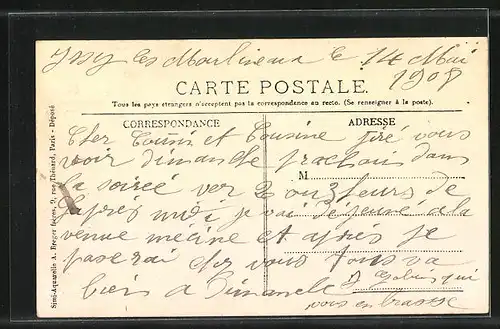 Issy les Moulineux le 14 Mai
1908
CARTE POSTALE.
Tous les pays étrangers n'acceptent pas la correspondance au recto. (Se renseigner à la poste).
CORRESPONDANCE
ADRESSE
Cher Cousin et Cousine jiré vous
voir dimanche prochain dans
M
la soireé ver 2 ou 3 heurs de
laprés midi je vai déjeuné a la
venue et aprés je
paserai chez vous tous va
bien a Dimanche qui
vous en brasse
Simi-Aquarelle A. Breger frères, 9, rue Thénard, Paris - Déposé